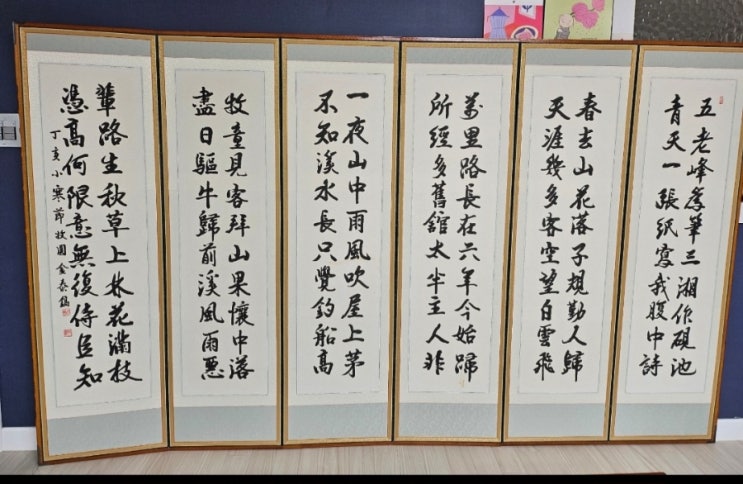 五老峰爲筆三湘作硯池
青天一張紙寫我腹中詩
春去山花落子規勸人歸
天涯幾多客空望白雲飛
萬里路長在六年今始歸
所經多舊館太半主人非
一夜山中雨風吹屋上茅
不知溪水長只覺釣船高
牧童見客拜山果懷中落
盡日驅牛歸前溪風雨惡
輦路生秋草上林花滿枝
憑高何限意無復侍臣知
丁亥小寒節牧園金泰